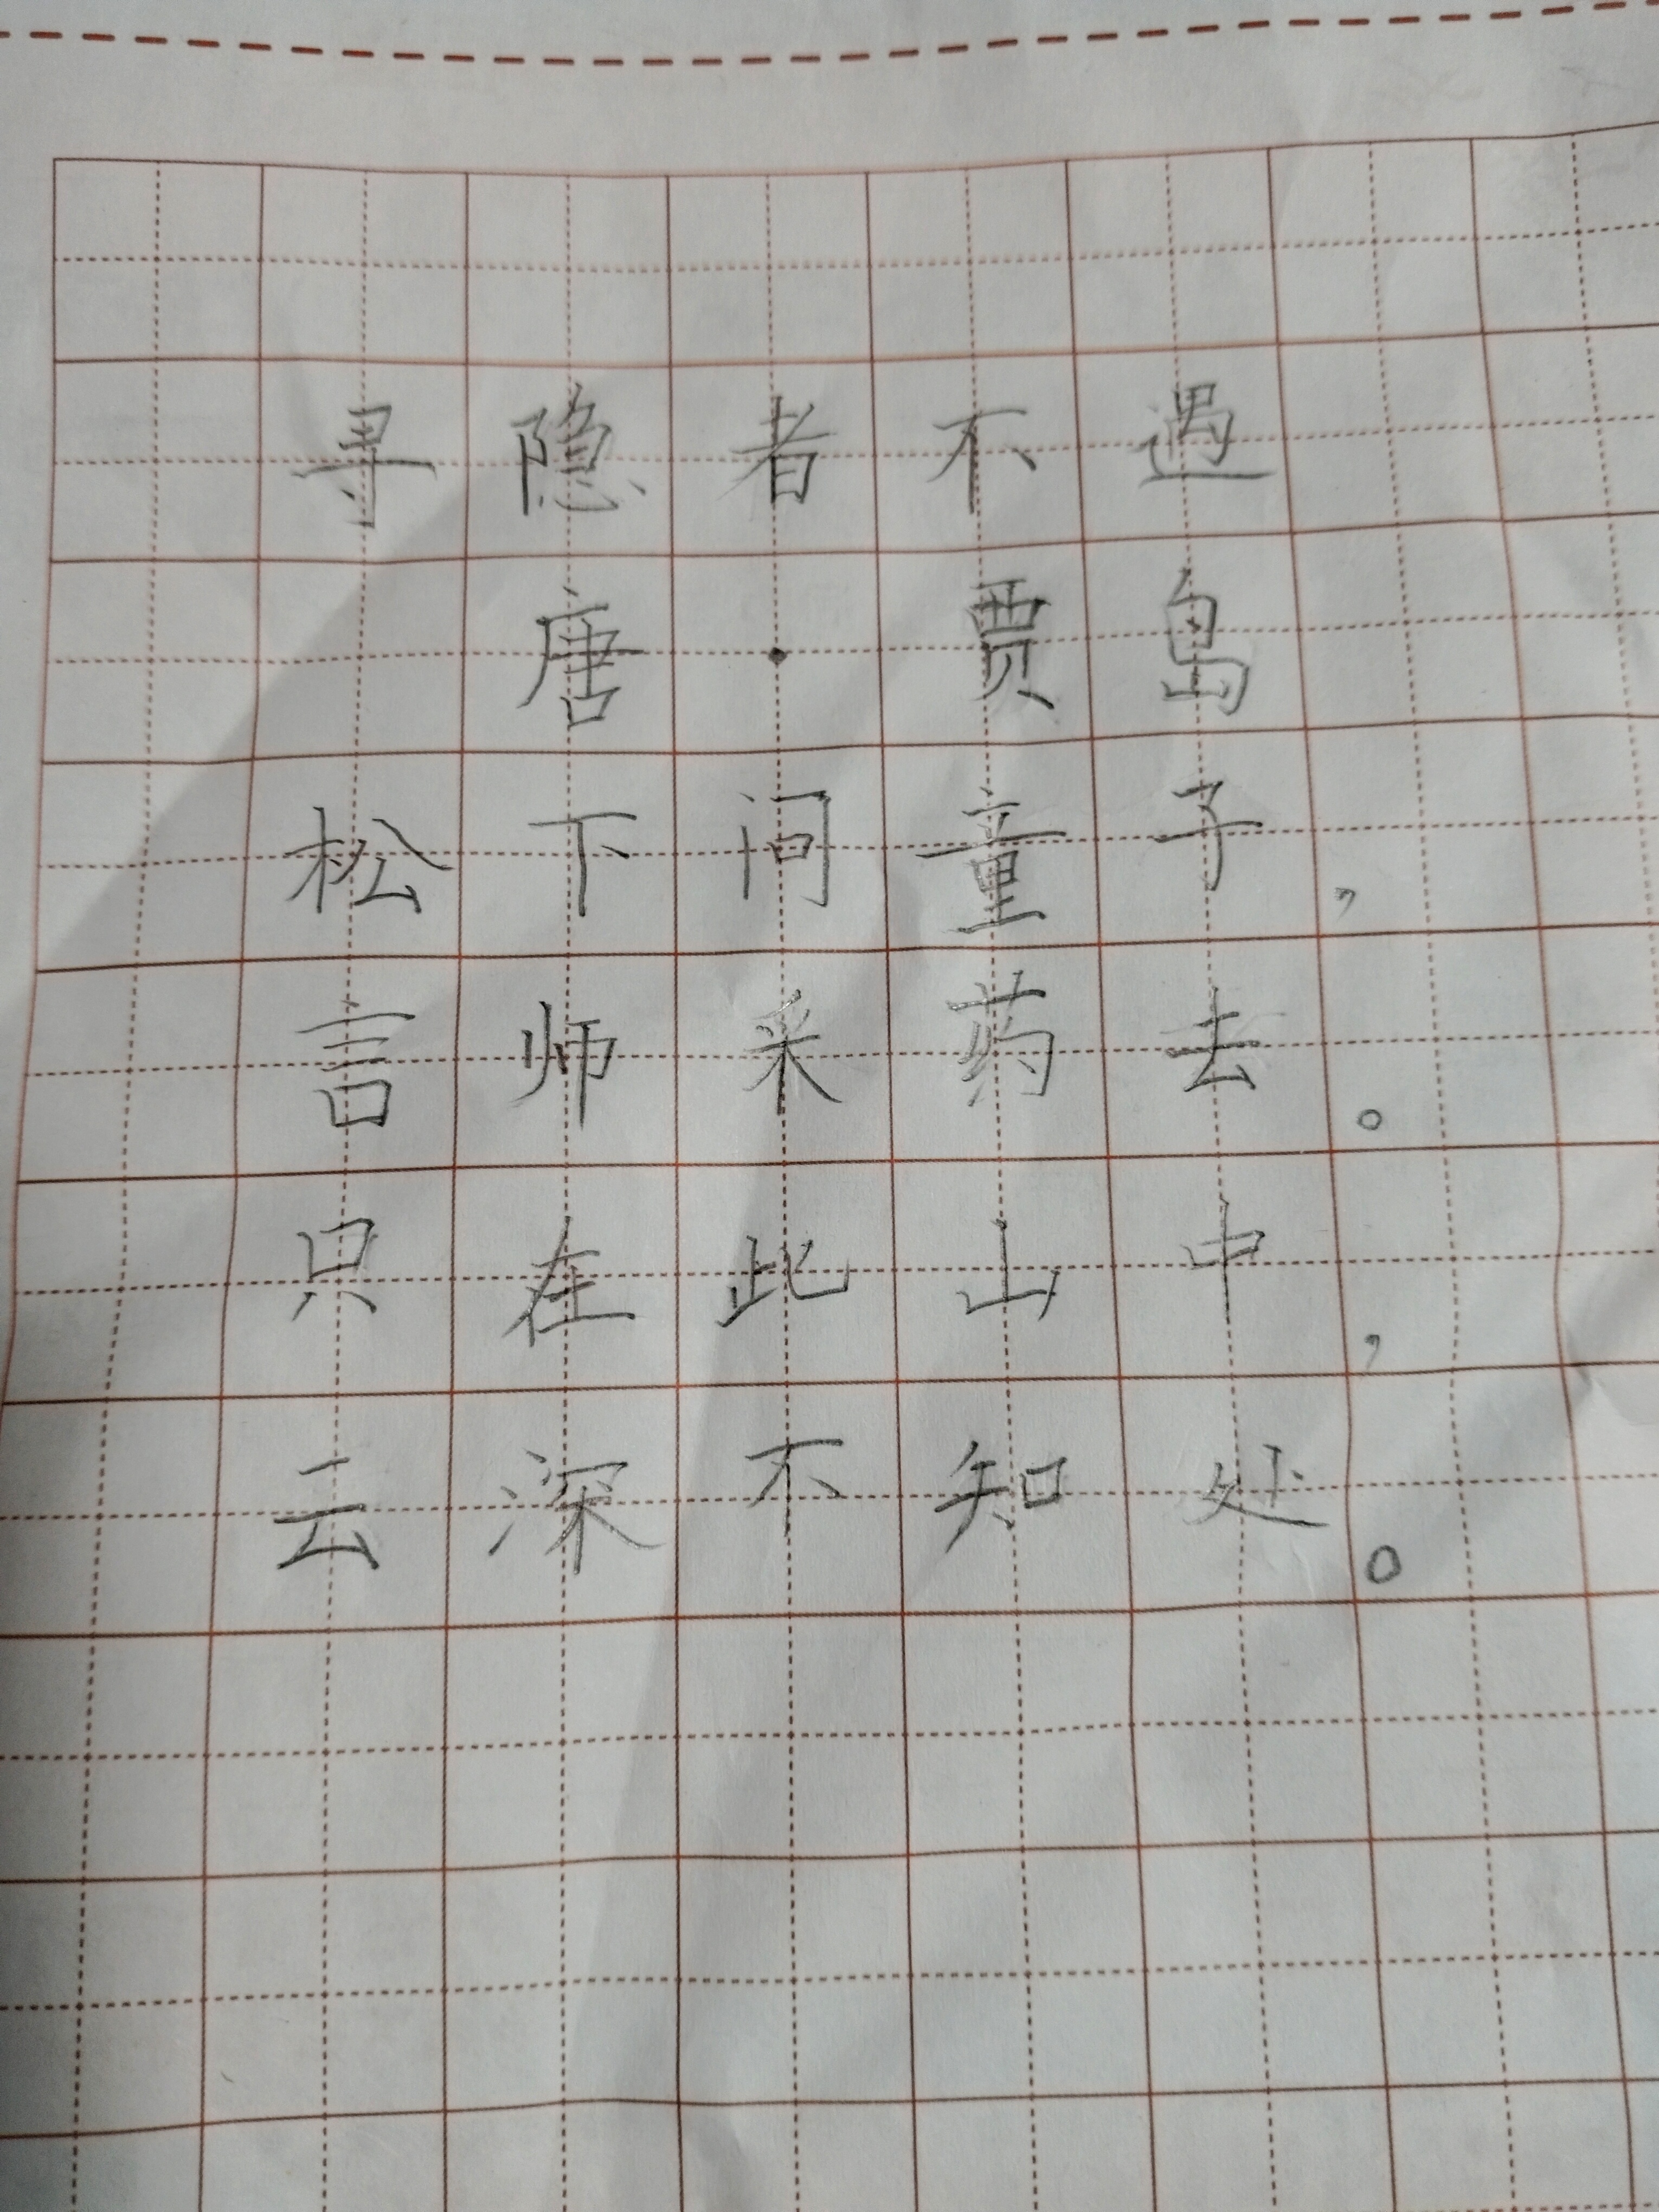 寻隐者不遇
唐·贾岛
松下问童子，
言师采药去。
只在此山中，
云深不知处。